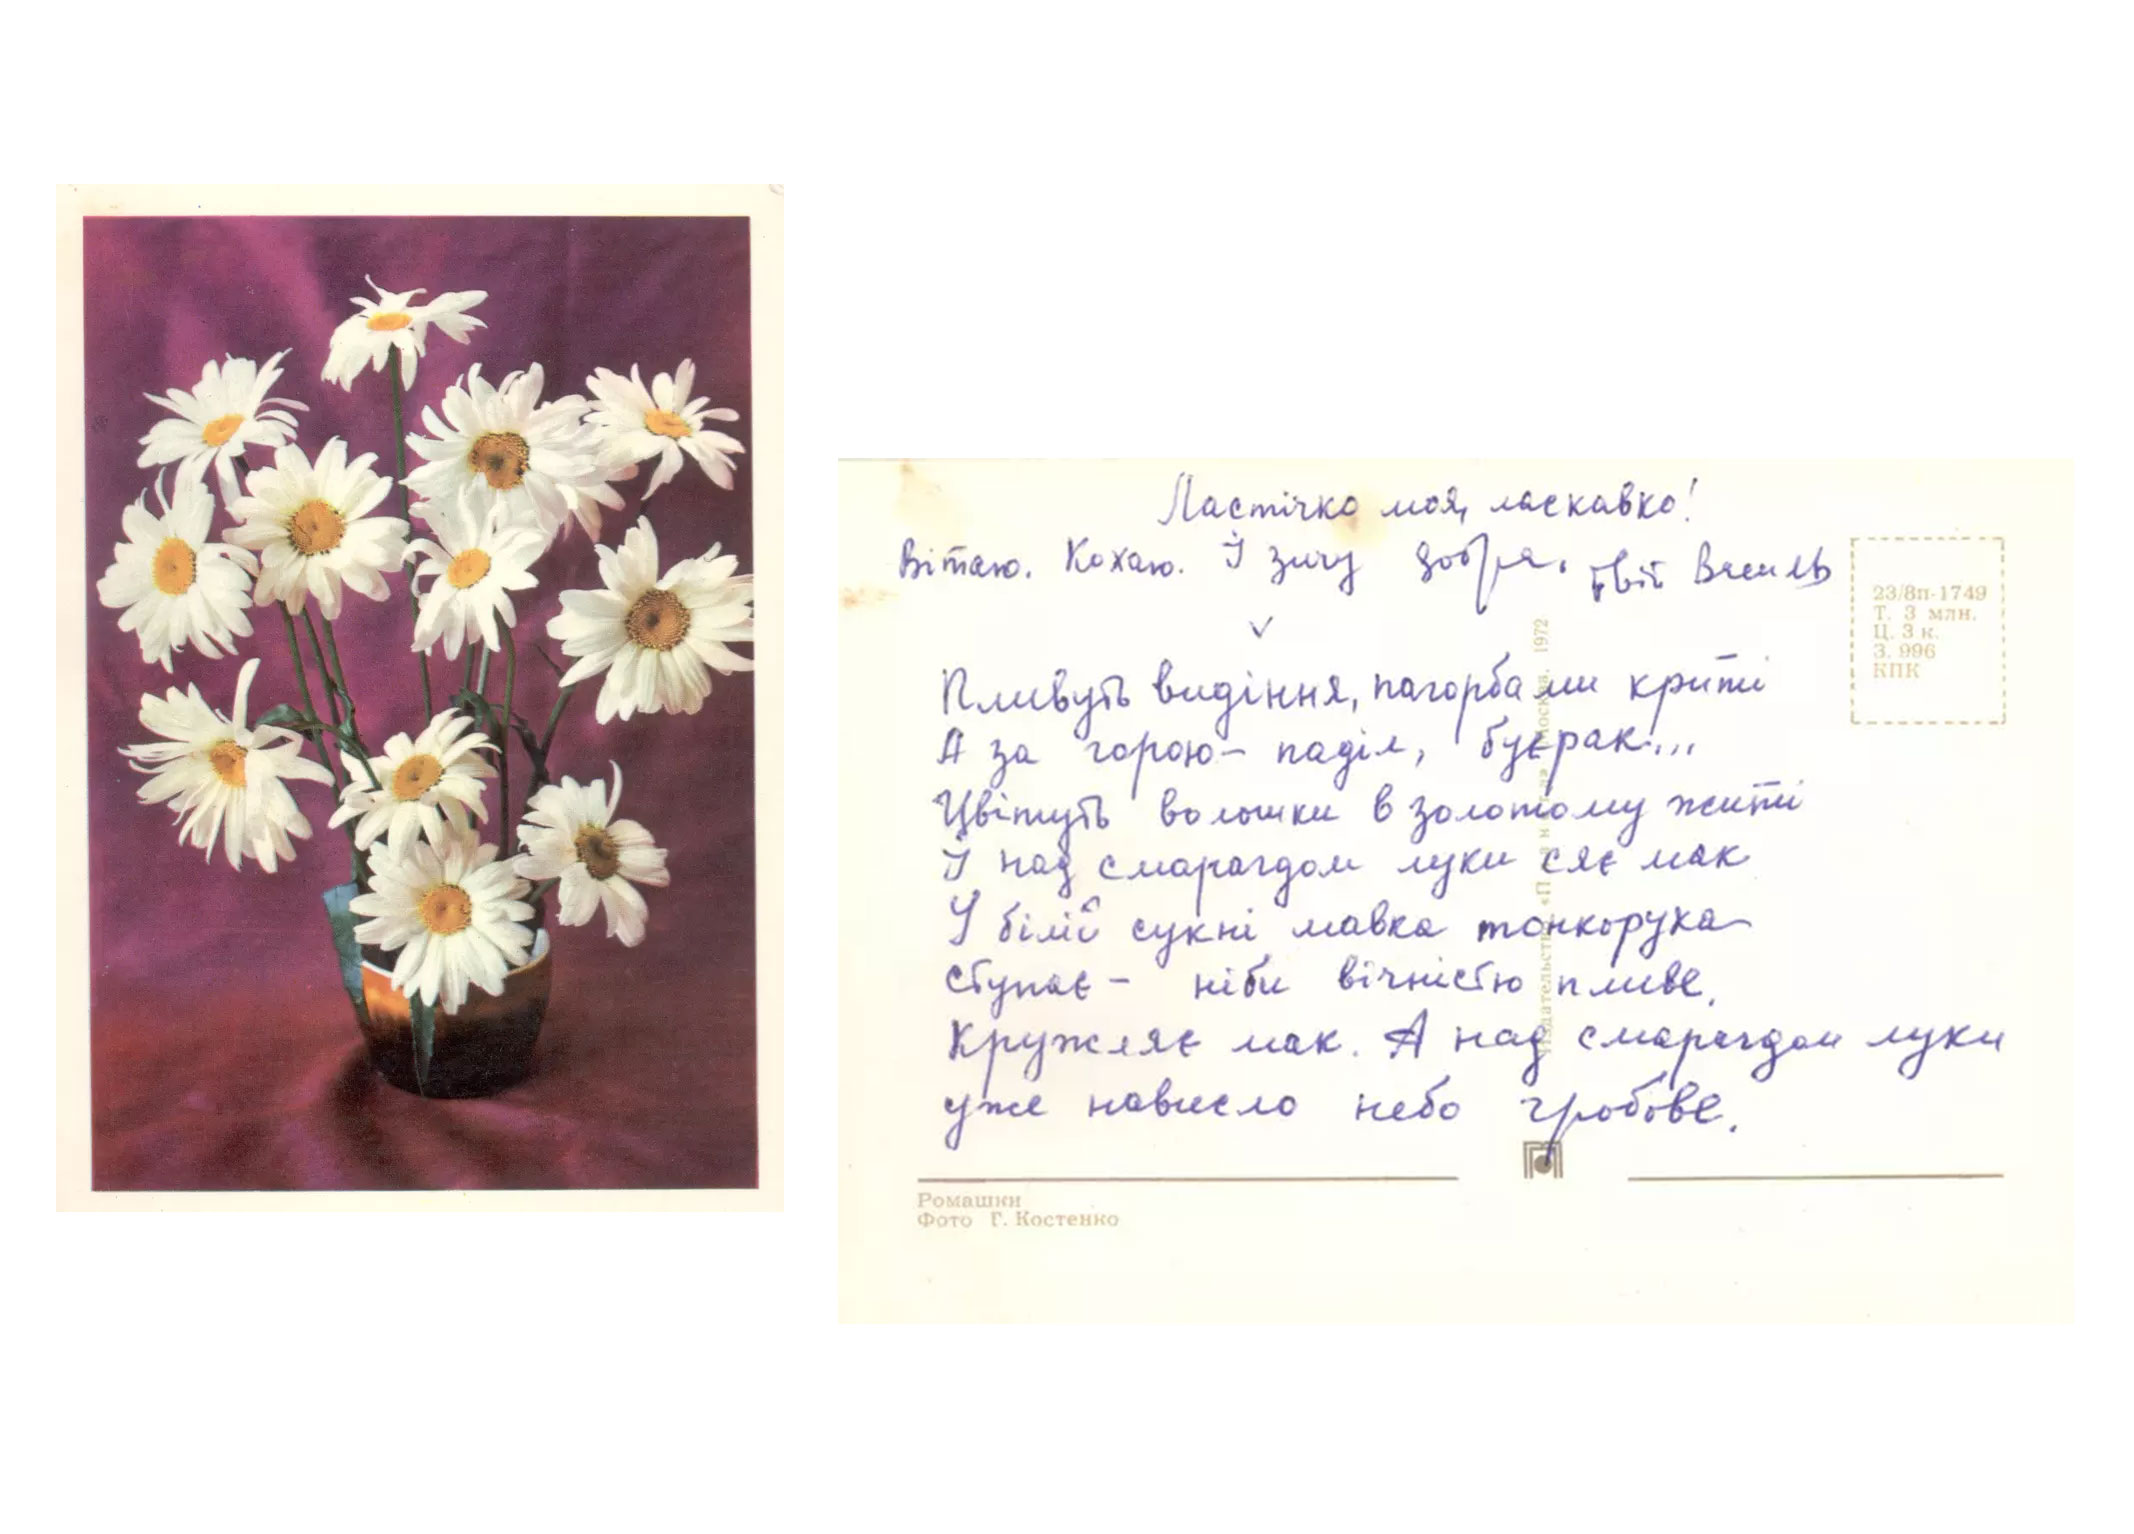 Ластічко моя, ласкавко!
Вітаю. Кохаю. І зичу добра. Твій Василь
Пливуть видіння, пагорбами криті
А за горою – паділ, буєрак...
Цвітуть волошки в золотому житі
І над смарагдом луки сяє мак
У білій сукні мавка тонкорука
ступає – ніби вічністю пливе.
Кружляє мак. А над смарагдом луки
уже нависло небо гробове.
23/8п-1749
Т. 3 млн.
Ц. 3 к.
З. 996
КПК
Издательство «Планета». Москва. 1972
Ромашки
Фото Г. Костенко